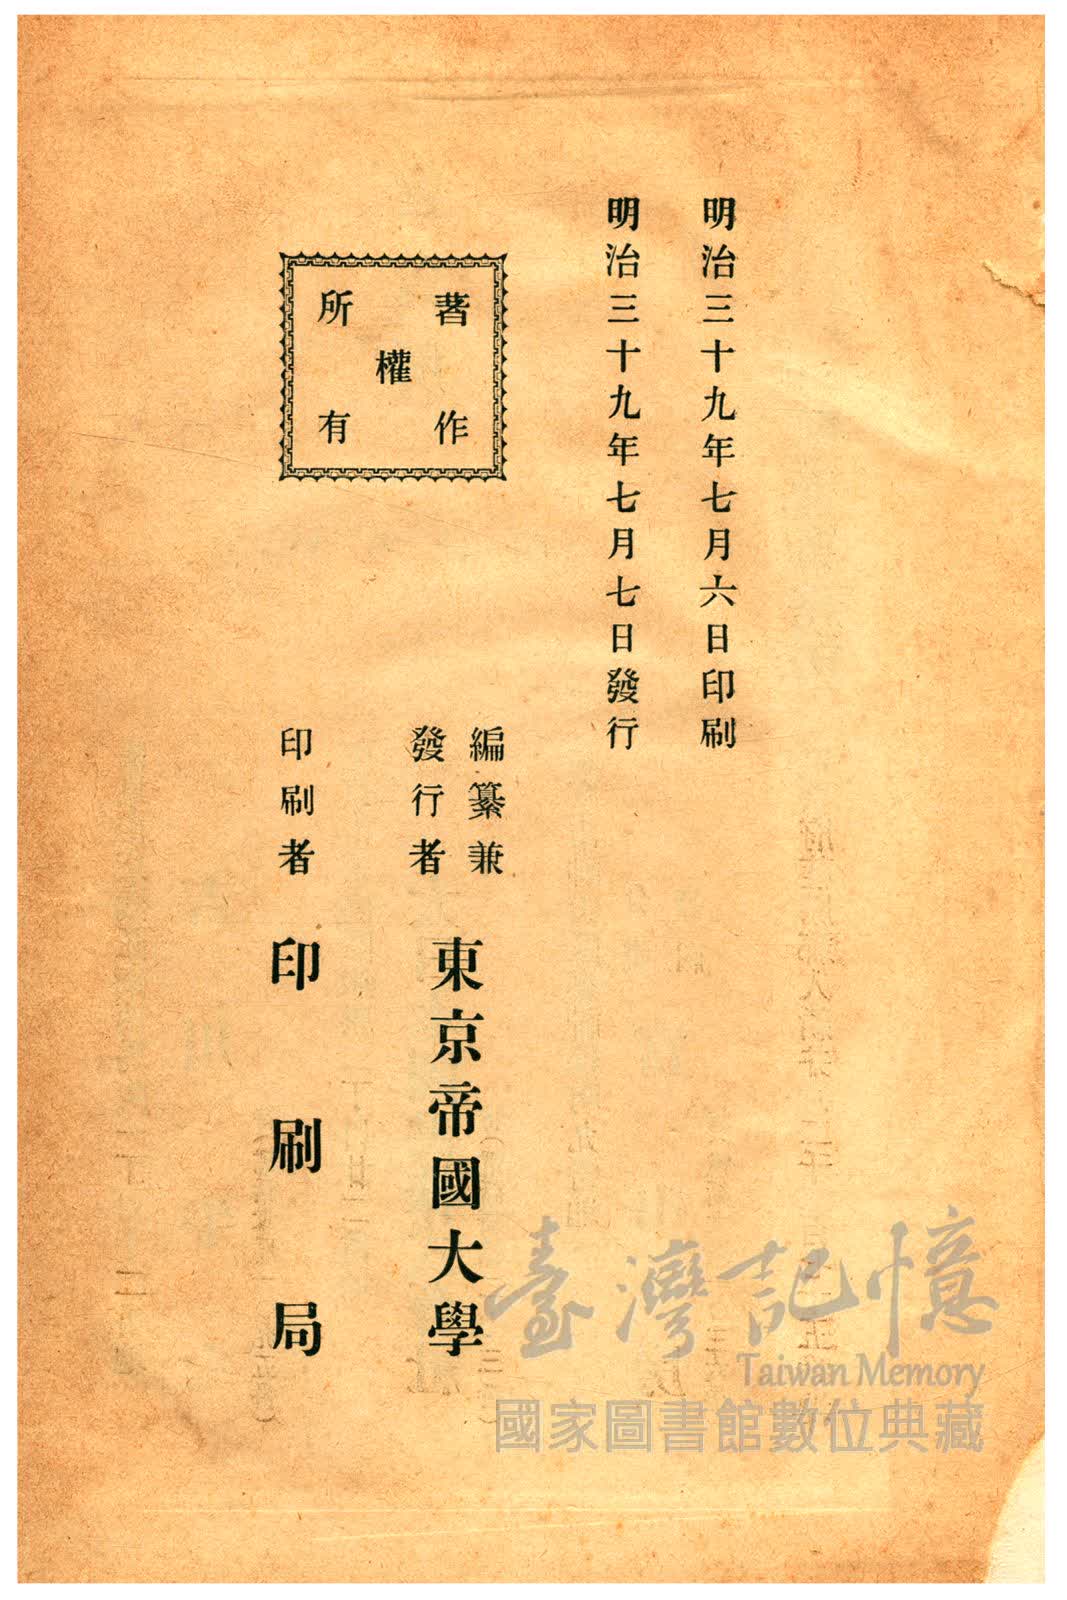 明治三十九年七月六日印刷
明治三十九年七月七日發行
著作
權
所有
編纂兼
發行者
東京帝國大學
印刷者
印刷局
臺灣記憶
Taiwan Memory
國家圖書館數位典藏